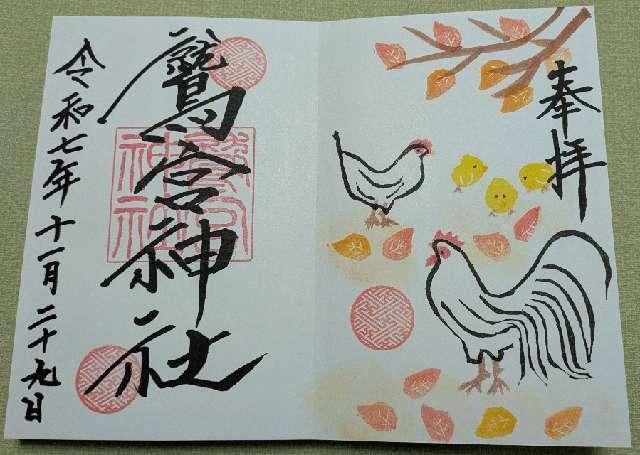 奉拝
鷲宮神社
令和七年十一月二十九日